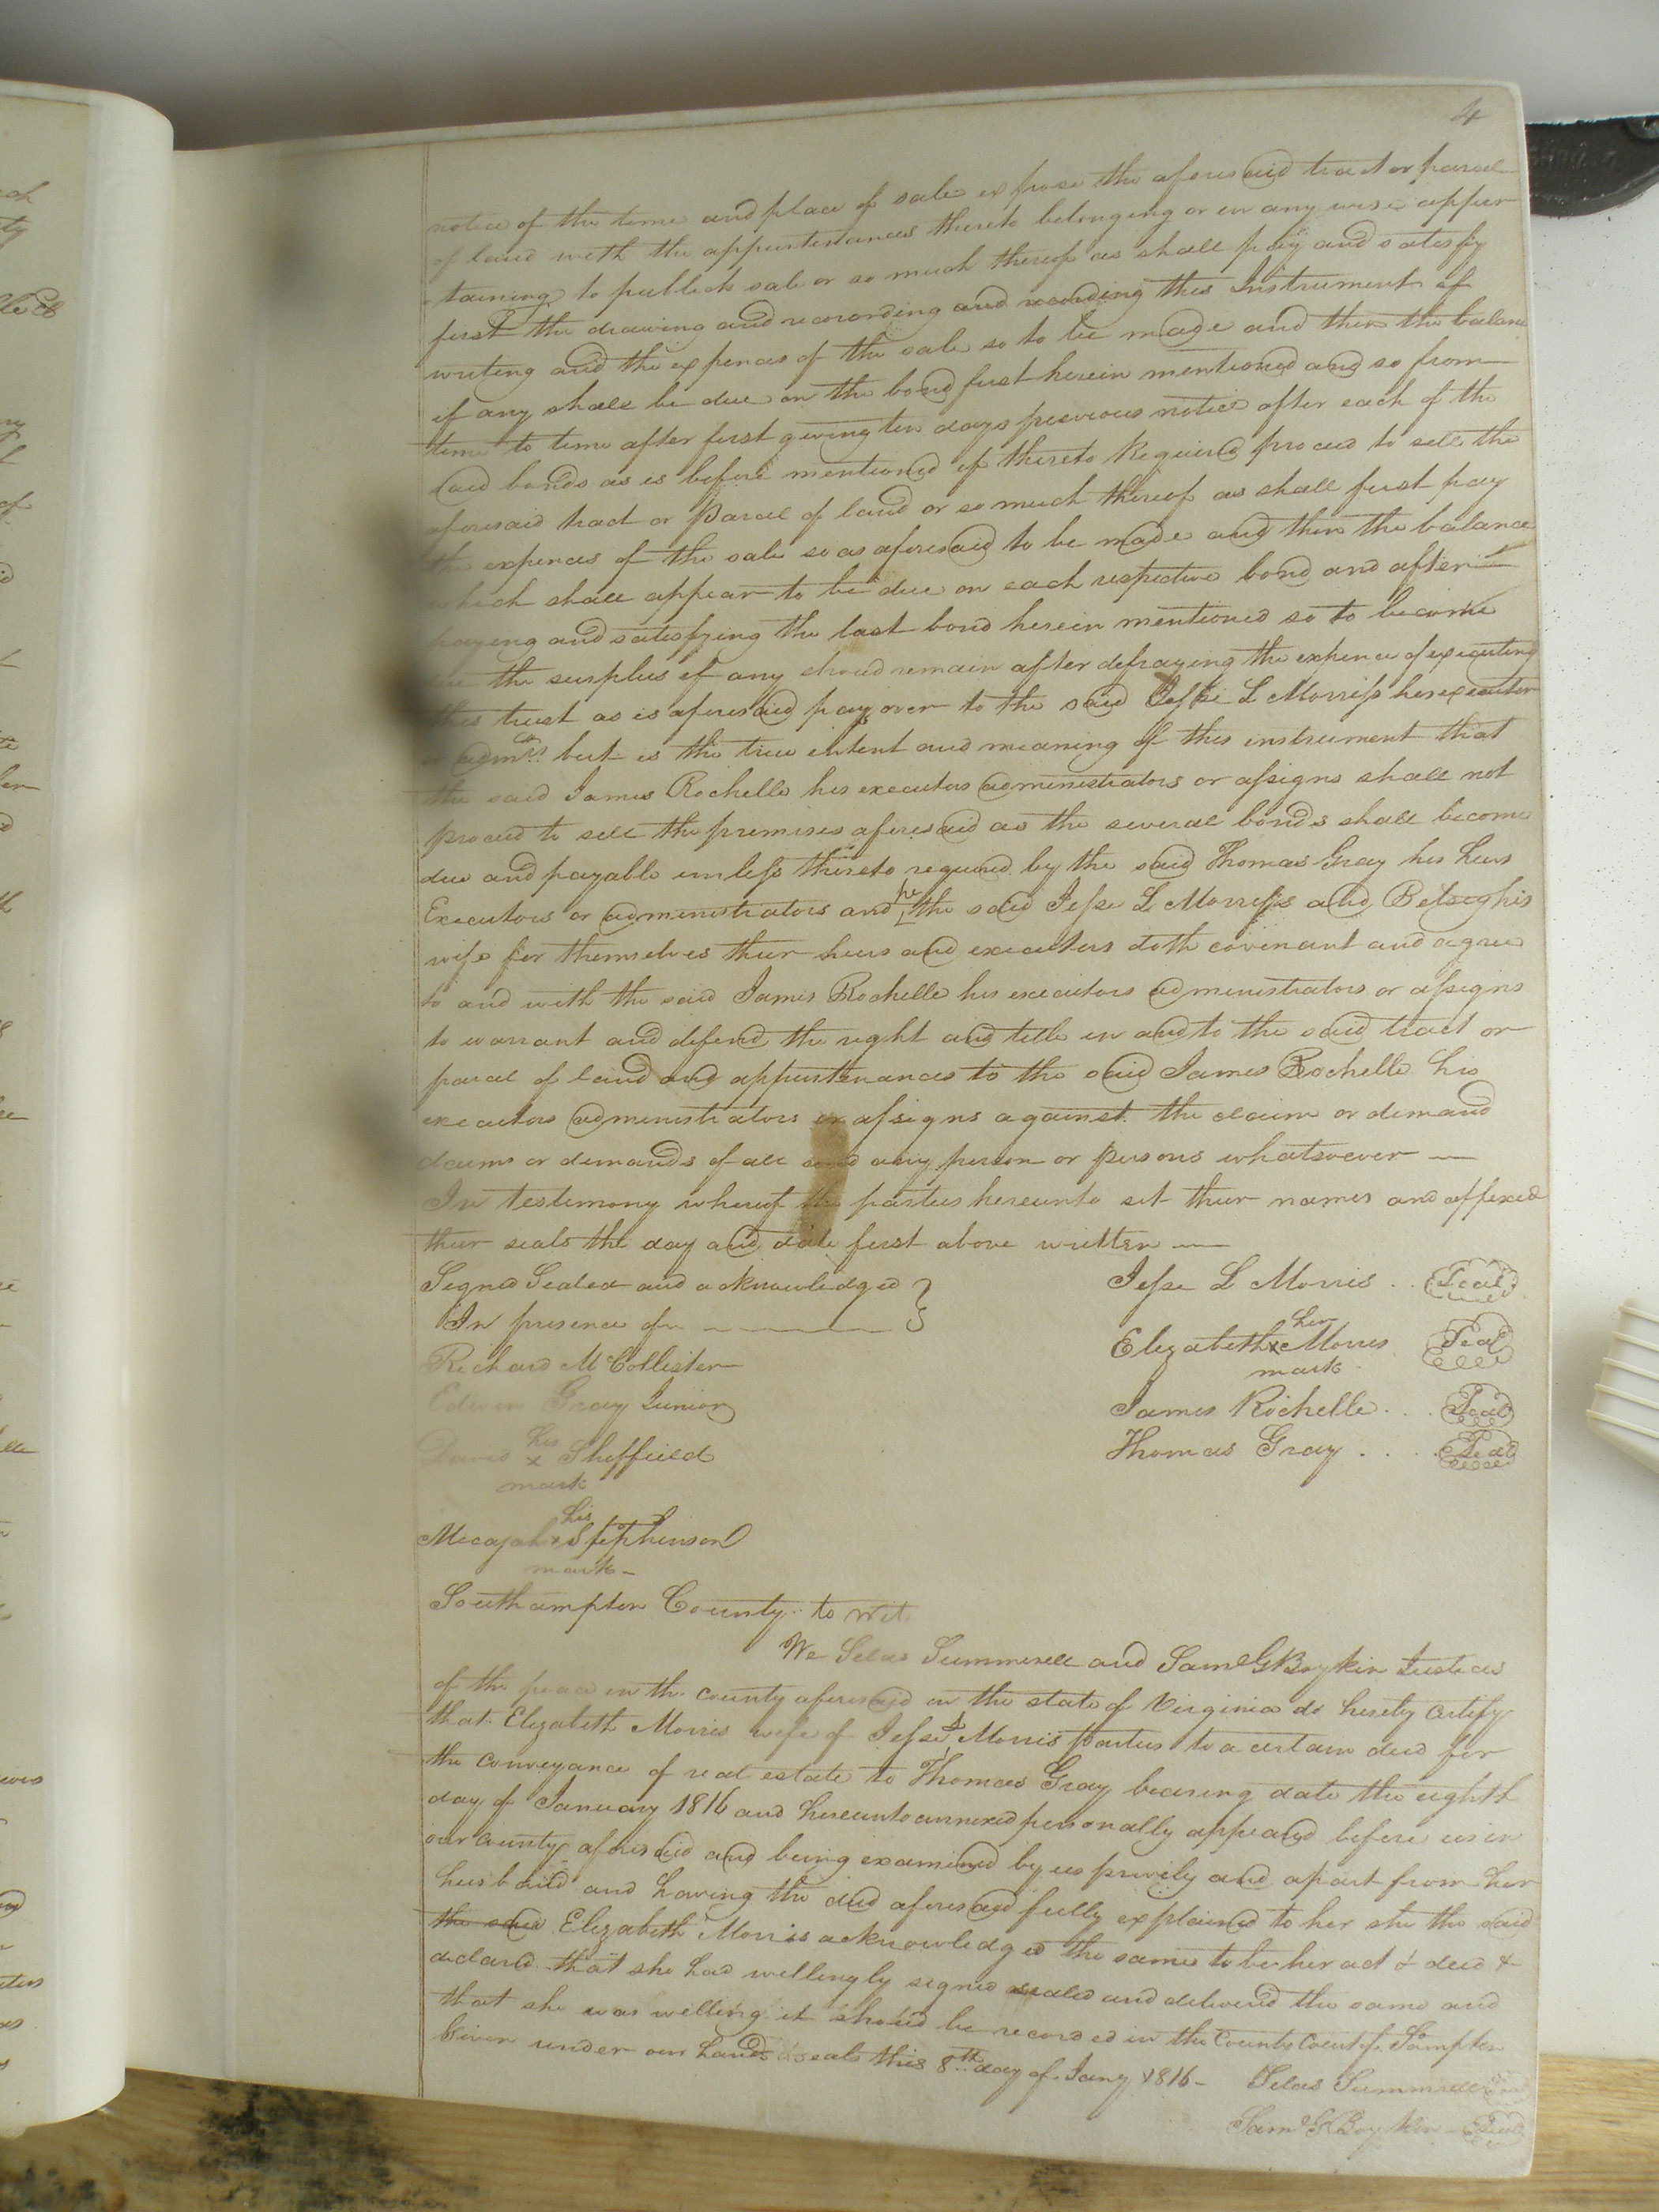 4
notice of the time and place of sale expose the aforesaid tract or parcel
of land with the appurtenances thereto belonging or in any wise apper
taining to publick sale or so much thereof as shall pay and satisfy
first the drawing and recording and recording this Instrument of
writing and the expences of the sale so to be made and then the balance
if any shall be due on the bond first herein mentioned and so from
time to time after first giving ten days previous notice after each of the
said bonds as is before mentioned if thereto Required proceed to sell the
aforesaid tract or parcel of land or so much thereof as shall first pay
the expences of the sale so as aforesaid to be made and then the balance
which shall appear to be due on each respective bond and after
paying and satisfying the last bond herein mentioned so to become
due the surplus if any should remain after defraying the expence of executing
this trust as is aforesaid pay over to the said Jesse L Morriss his executor
or admrs. but is the true entent and meaning of this instrument that
the said James Rochelle his executors administrators or assigns shall not
proceed to sell the premises aforesaid as the several bonds shall become
due and payable unless thereto required by the said Thomas Gray his heirs
Executors or administrators and he the said Jesse L Morriss and Betsey his
wife for themselves their heirs and executors doth covenant and agree
to and with the said James Rochelle his executors administrators or assigns
to warrant and defend the right and title in and to the said tract or
parcel of land and appurtenances to the said James Rochelle his
executors administrators or assigns against the claim or demand
claims or demands of all and any person or persons whatsoever —
In testimony whereof the parties hereunto set their names and affixed
their seals the day and date first above written —
Signed Sealed and acknowledged } Jesse L Morris . . Seal
In presence of — } Elizabeth her x mark Morris Seal
Richard McCollister
Edwin Gray Junior James Rochelle . . . Seal
David his x mark Sheffield Thomas Gray . . . . Seal
Mecajah his x mark Stephenson
Southampton County to wit
We Silas Summerell and Saml G Boykin Justices
of the peace in the county aforesaid in the state of Virginia do hereby certify
that Elizabeth Morris wife of Jesse L Morris parties to a certain deed for
the conveyance of real estate to Thomas Gray bearing date the eighth
day of January 1816 and hereunto annexed personally appeared before us in
our county aforesaid and being examined by us privily and apart from her
husband and having the deed aforesaid fully explained to her she the said
the said Elizabeth Morris acknowledged the same to be her act & deed &
declared that she had willingly signed sealed and delivered the same and
that she was willing it should be recorded in the County Court of Sampton
Given under our hands & seals this 8th day of Jany 1816 — Silas Summerell Seal
Saml G Boykin — Seal